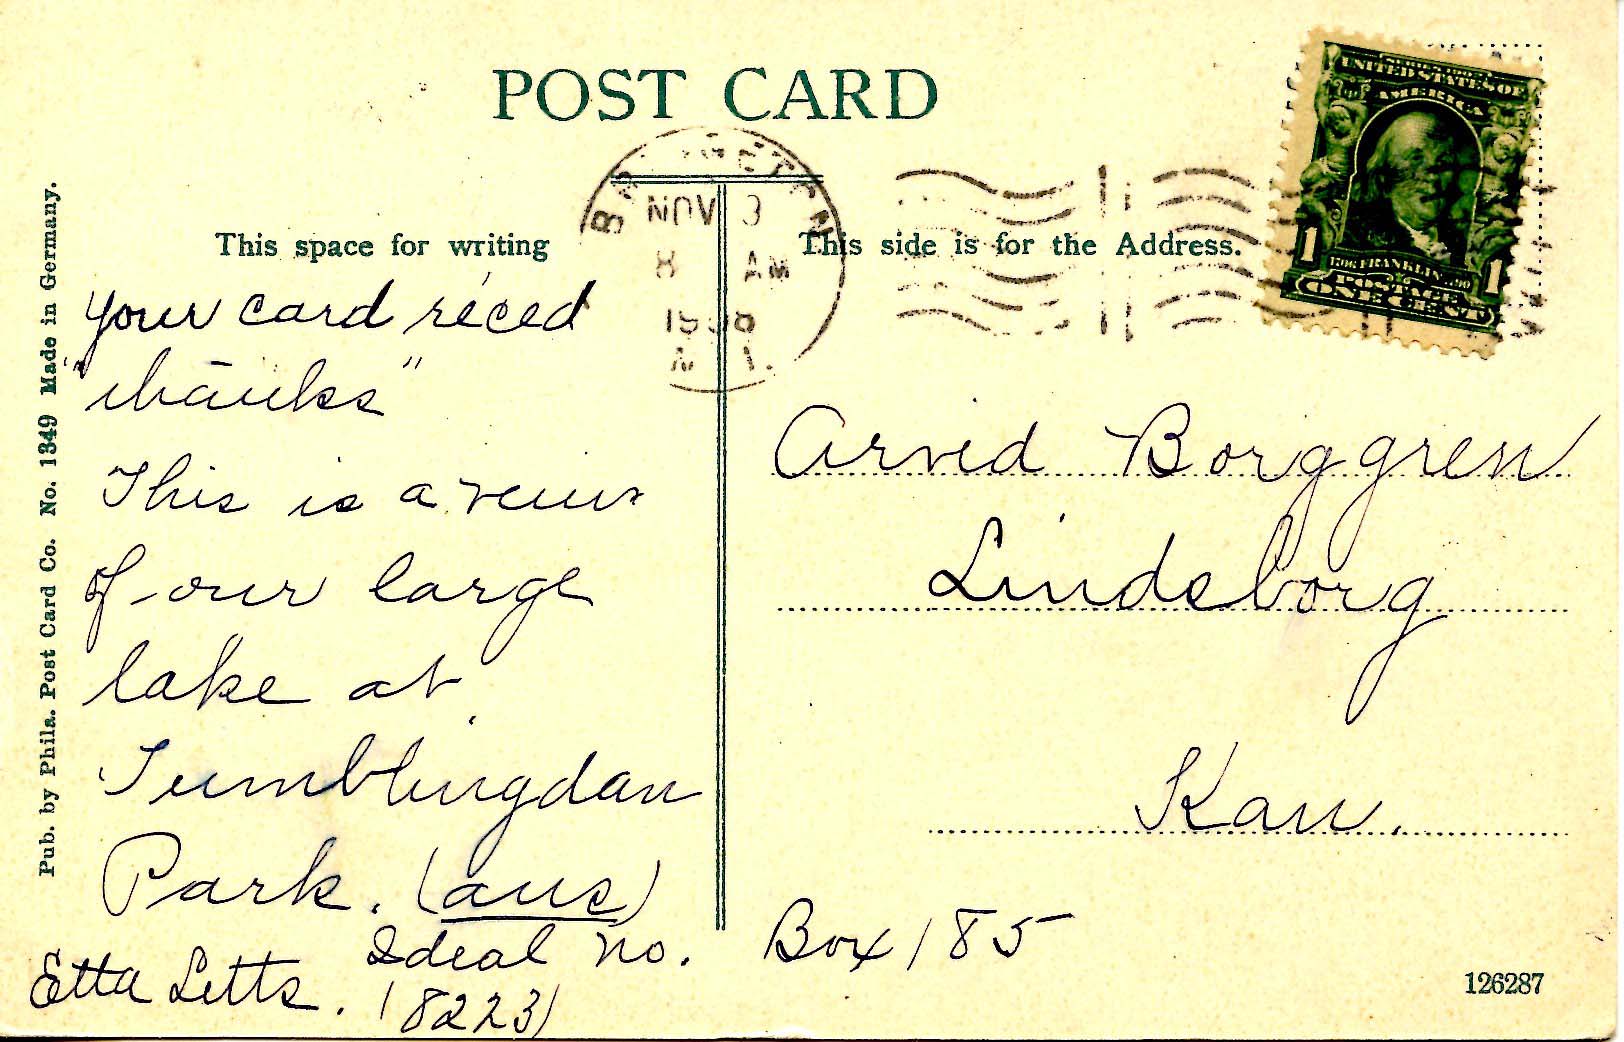 POST CARD
UNITED STATES OF
AMERICA
1 FRANKLIN 1
POSTAGE
ONE CENT
NOV 3
8 AM
N J.
This space for writing
This side is for the Address.
Pub. by Phila. Post Card Co. No. 1349 Made in Germany.
Your card rec'ed
"thanks"
This is a veiw
of our large
lake at
Tumblingdam
Park. (ans)
Etta Letts. Ideal No.
(8223)
Arvid Borggren
Lindsborg
Kan.
Box 185
126287